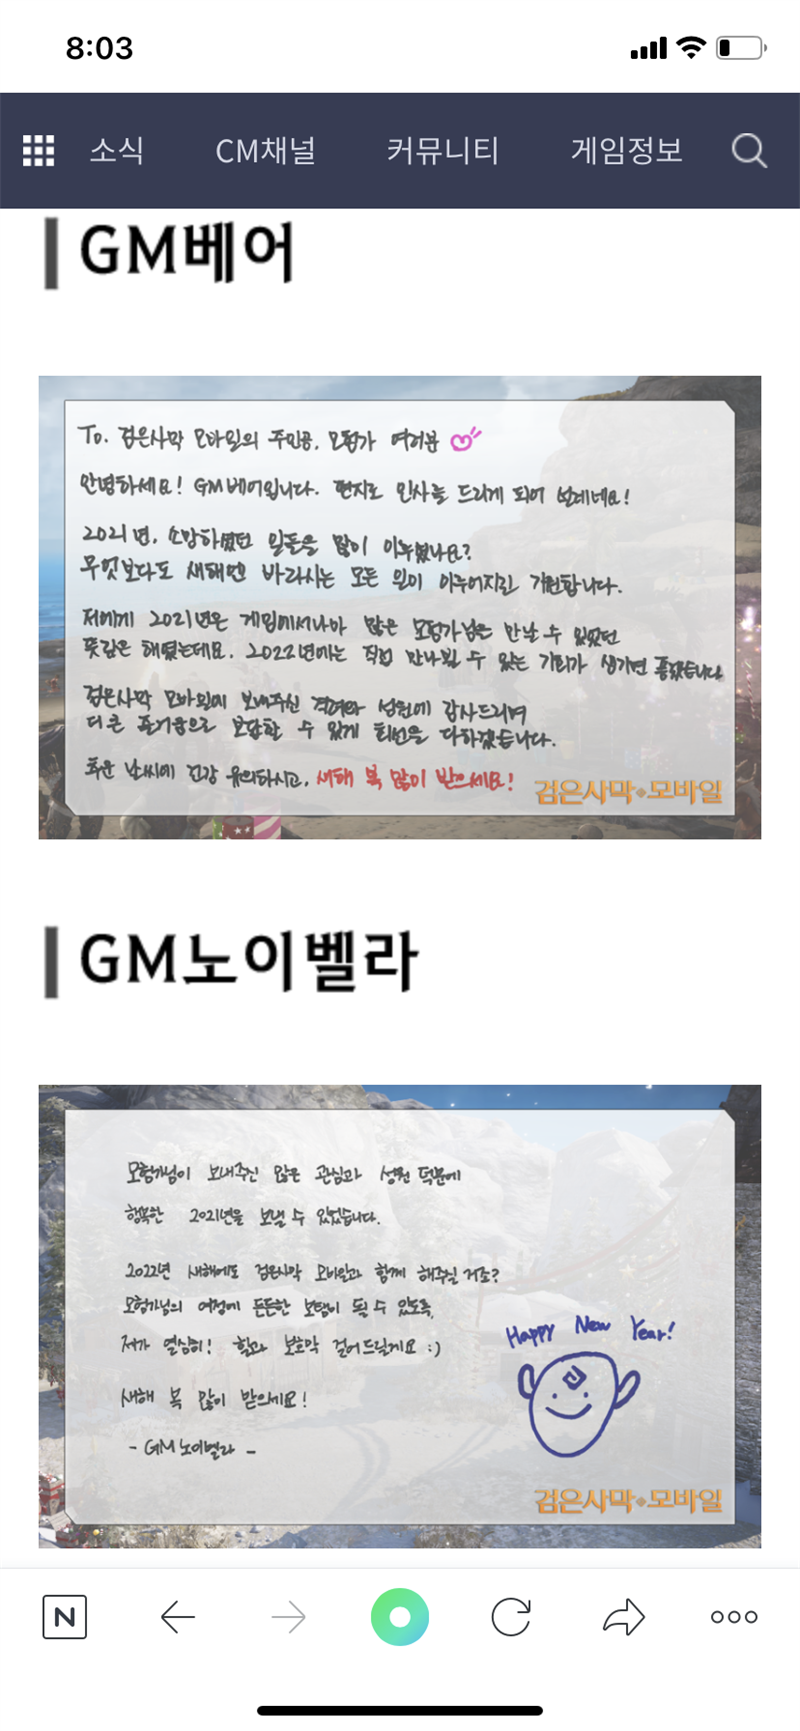 8:03
소식 CM채널 커뮤니티 게임정보
GM베어
To. 검은사막 모바일의 주인공, 모험가 여러분
안녕하세요! GM베어입니다. 편지로 인사를 드리게 되어 설레네요!
2021년, 소망하셨던 일들을 많이 이루셨나요?
무엇보다도 새해엔 바라시는 모든 일이 이루어지길 기원합니다.
저에게 2021년은 게임에서나마 많은 모험가님을 만날 수 있었던
뜻깊은 해였는데요. 2022년에는 직접 만나뵐 수 있는 기회가 생기면 좋겠습니다
검은사막 모바일에 보내주신 격려와 성원에 감사드리며
더 큰 즐거움으로 보답할 수 있게 최선을 다하겠습니다.
추운 날씨에 건강 유의하시고, 새해 복 많이 받으세요!
검은사막 모바일
GM노이벨라
모험가님이 보내주신 많은 관심과 성원 덕분에
행복한 2021년을 보낼 수 있었습니다.
2022년 새해에도 검은사막 모바일과 함께 해주실 거죠?
모험가님의 여정에 든든한 보탬이 될 수 있도록,
저가 열심히! 힐과 보호막 걸어드릴게요 :)
새해 복 많이 받으세요!
- GM노이벨라 -
Happy New Year!
검은사막 모바일
N